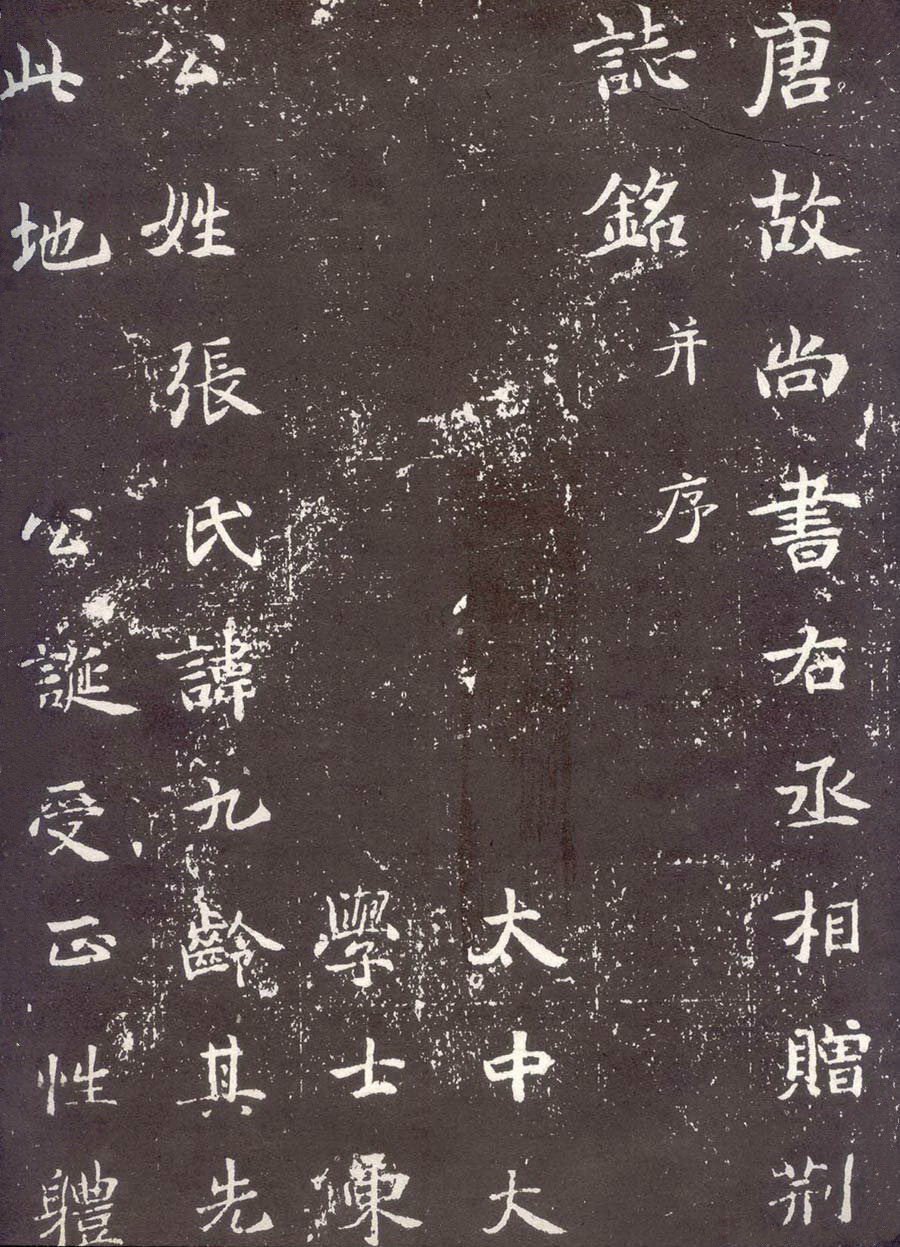 唐故尚書右丞相贈荊
誌銘并序
太中大
學士陳
公姓張氏諱九齡其先
此地公誕受正性體